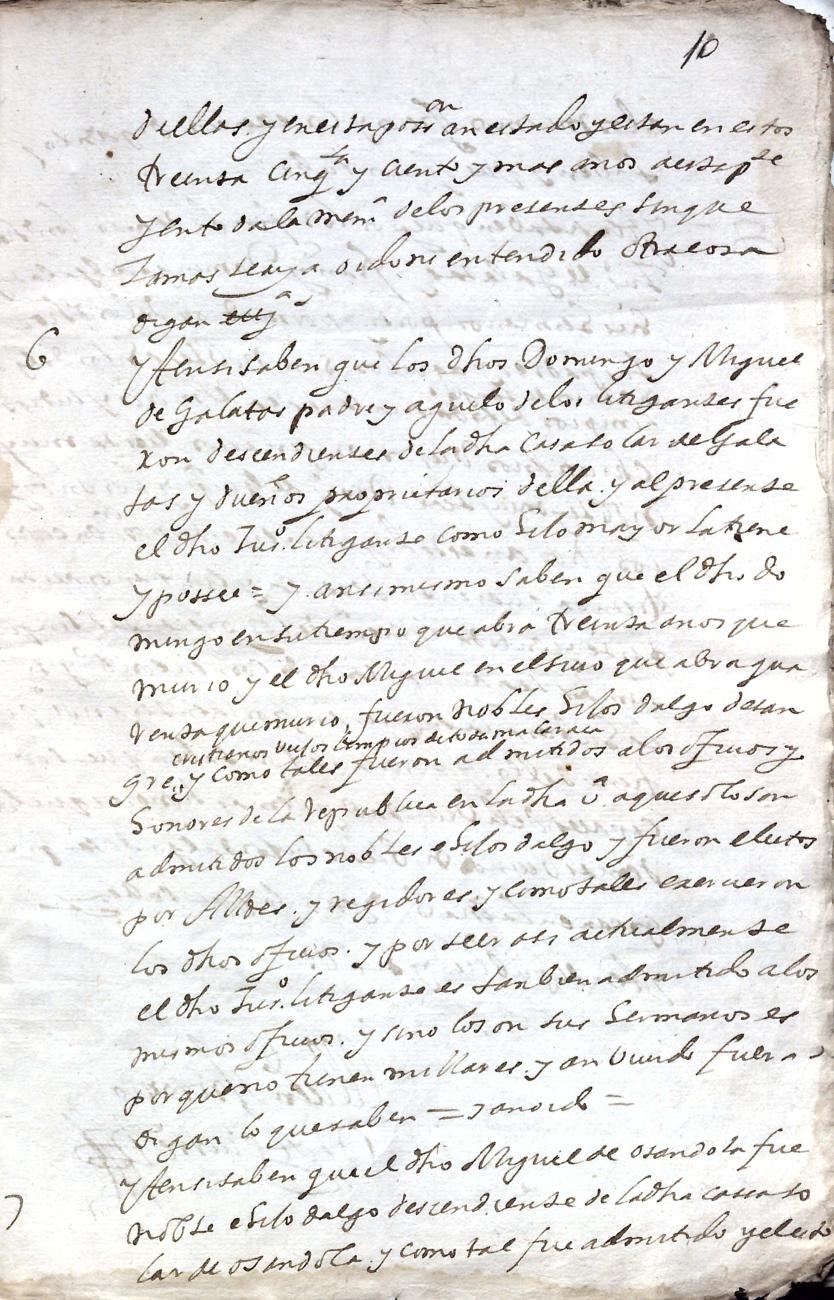 10
dellas. y en esta poss.on an estado y estan en estos
treinta cinq.ta y ciento y mas años a esta p.te
y ento da la mem.a de los presentes sin que
Jamas se aya oido ni entendido otra cosa
digan
6
yten si saben que los dhos Domingo y Miguel
de Galatas padre y aguelo de los litigantes fue
ron descendientes de la dha Casa solar de Gala
tas y dueños proprietarios della. y al presente
el dho Ju.o litigante como hilo mayor la tiene
y possee = y ansimismo saben que el dho do
mingo en su tiempo que abra treinta anos que
murio y el dho Miguel en el suio que abra qua
renta que murio, fueron nobles hilos dalgo de san
cristianos viejos limpios de toda mala raca
gre.. y como tales fueron admitidos a los oficios y
honores de la republica en la dha v.a a que solo son
admitidos los nobles e hilos dalgo y fueron electos
por Alldes. y regidores y como tales exercieron
los dhos oficios. y por seer assi actualmente
el dho Ju.o litigante es tanbien admitido a los
mismos oficios. y si no lo son sus hermanos es
porque no tienen millares. y an vivido fuera
digan lo que saben = y an oido =
7
yten si saben que el dho Miguel de osandola fue
noble e hilo dalgo descendiente de la dha cassa so
lar de osandola. y como tal fue admitido y electo